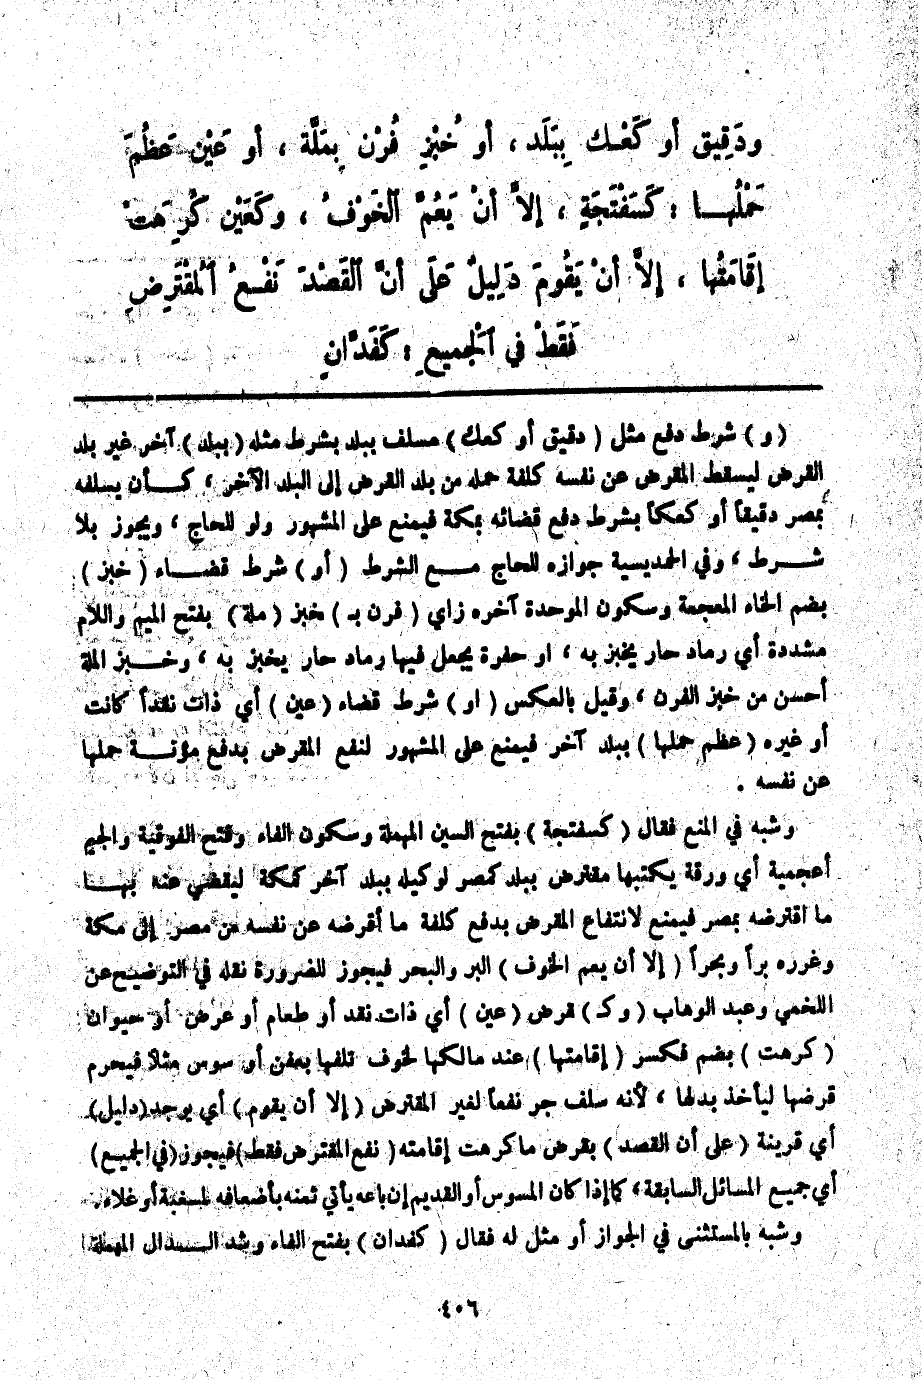 ودَقِيق أو كَعْك بِبَلَد ، أو خُبْزِ فُرْن بِمَلَّة ، أو عَيْن عَظُمَ
حَمْلُهـــا : كَسَفْتَجَةٍ ، إلاَّ أنْ يَعُمَّ ٱلخَوْفُ ، وكَعَيْن كُرِهَتْ
إقَامَتُها ، إلاَّ أنْ يَقُومَ دَلِيلٌ عَلَى أنَّ ٱلقَصْدَ نَفْعُ ٱلمُقْتَرِضِ
فَقَطْ في ٱلْجميعِ : كَفَدَّانِ
( و ) شرط دفع مثل ( دقيق أو كعك ) مسلف ببلد بشرط مثله ( ببلد ) آخر غير بلد
القرض ليسقط المقرض عن نفسه كلفة حمله من بلد القرض إلى البلد الآخر ، كـــأن يسلفه
بمصر دقيقاً أو كعكاً بشرط دفع قضائه بمكة فيمنع على المشهور ولو للحاج ، ويجوز بلا
شـــرط ، وفي الحمديسية جوازه للحاج مـــع الشرط ( أو ) شرط قضـــاء ( خبز )
بضم الخاء المعجمة وسكون الموحدة آخره زاي ( فرن بـ ) خبز ( ملة ) بفتح الميم واللام
مشددة أي رماد حار يخبز به ، او حفرة يجعل فيها رماد حار يخبز به ، وخـــبز الملة
أحسن من خبز الفرن ، وقيل بالعكس ( او ) شرط قضاء ( عين ) أي ذات نقداً كانت
أو غيره ( عظم حملها ) ببلد آخر فيمنع على المشهور لنفع المقرض بدفع مؤنـــة حملها
عن نفسه .
وشبه في المنع فقال ( كسفتجة ) بفتح السين المهملة وسكون الفاء وفتح الفوقية والجيم
أعجمية أي ورقة يكتبها مقترض ببلد كمصر لوكيله ببلد آخر كمكة ليقضي عنه بهـــا
ما اقترضه بمصر فيمنع لانتفاع المقرض بدفع كلفة ما أقرضه عن نفسه من مصر إلى مكة
وغرره براً وبحراً ( إلا أن يعم الخوف ) البر والبحر فيجوز للضرورة نقله في التوضيح عن
اللخمي وعبد الوهاب ( وكـ ) قرض ( عين ) أي ذات نقد أو طعام أو عرض أو حيوان
( كرهت ) بضم فكسر ( إقامتها ) عند مالكها لخوف تلفها بعفن أو سوس مثلاً فيحرم
قرضها ليأخذ بدلها ، لأنه سلف جر نفعاً لغير المقترض ( إلا أن يقوم ) أي يوجد ( دليل )
أي قرينة ( على أن القصد ) بقرض ما كرهت إقامته ( نفع المقترض فقط ) فيجوز ( في الجميـع )
أي جميـع المسائل السابقة ، كما إذا كان المسوس أو القديم إن باعه يأتي ثمنه بأضعافه لمسغبة أو غلاء .
وشبه بالمستثنى في الجواز أو مثل له فقال ( كفدان ) بفتح الفاء وشد الـــدال المهملة
٤٠٦